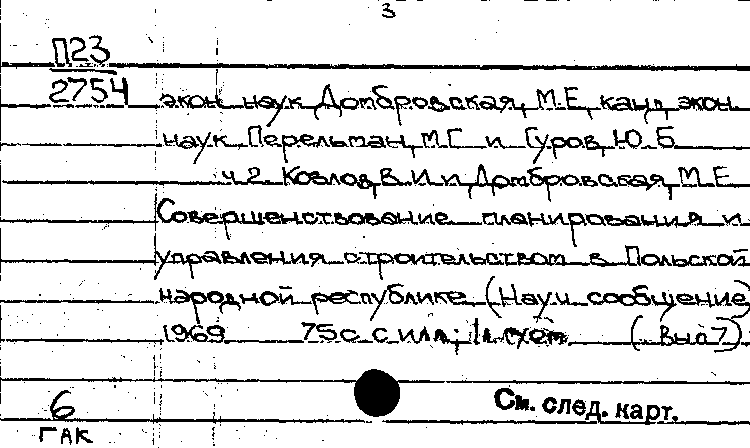 3
П23
2754
экон наук Домбровская, М.Е, канд экон
наук Перельман, М.Г и Гуров, Ю.Б
ч 2 Козлов, В.И и Домбровская, М.Е
Совершенствование планирования и
управления строительством в Польской
народной республике (Науч сообщение)
1969 75с с илл; 1л схем (Вып 7)
6
ГАК
См. след. карт.